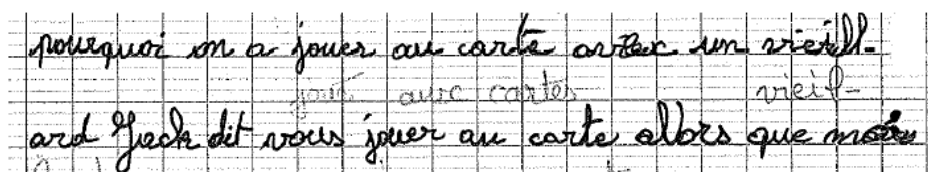 pourquoi on a jouer au carte avec un vieill-
joué aux cartes vieil-
ard Jack dit vous jouer au carte allors que